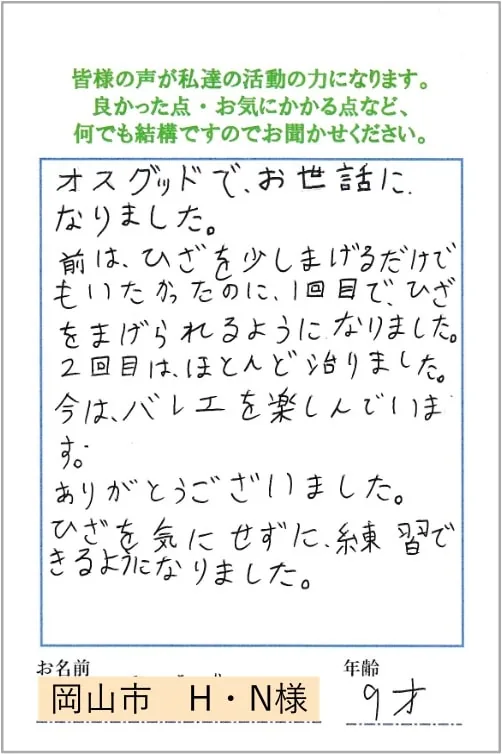 皆様の声が私達の活動の力になります。
良かった点・お気にかかる点など、
何でも結構ですのでお聞かせください。
オスグッドで、お世話に
なりました。
前は、ひざを少しまげるだけで
もいたかったのに、1回目で、ひざ
をまげられるようになりました。
2回目は、ほとんど治りました。
今は、バレエを楽しんでいま
す。
ありがとうございました。
ひざを気にせずに、練習で
きるようになりました。
お名前
年齢
岡山市 H・N様
9才